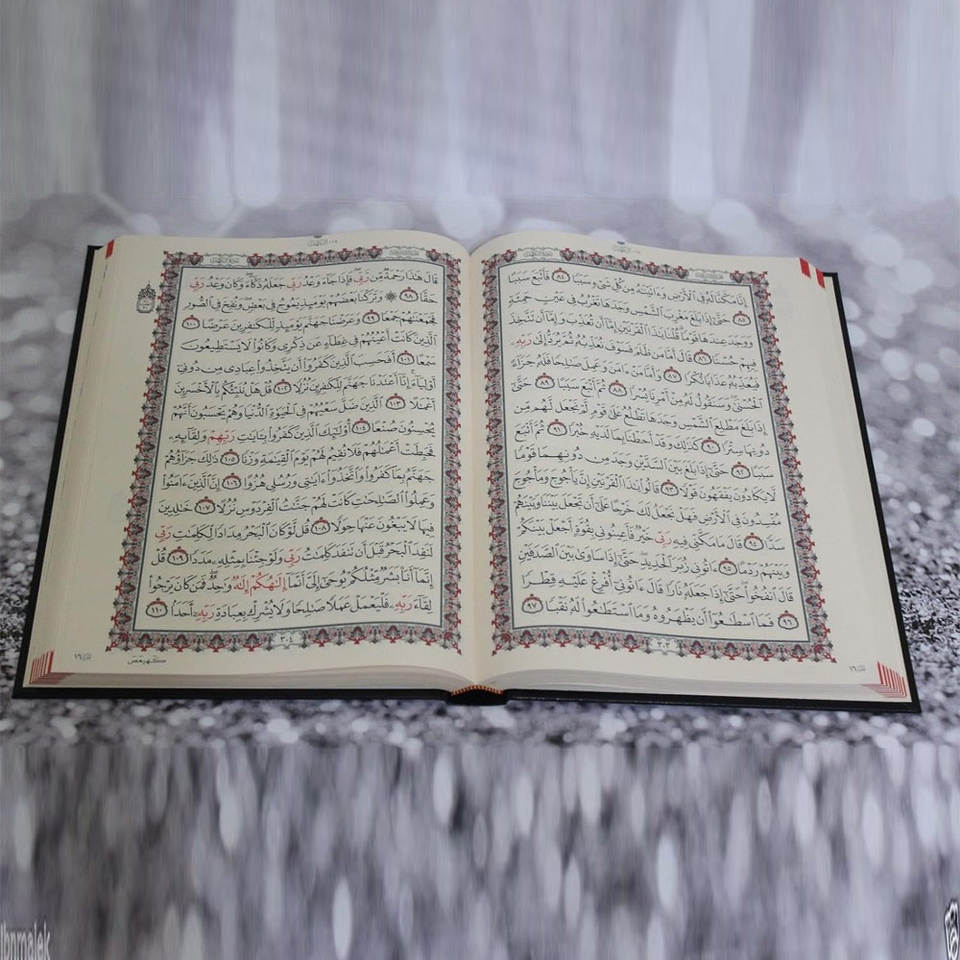 إِنَّا مَكَّنَّا لَهُۥ فِي ٱلْأَرْضِ وَءَاتَيْنَٰهُ مِن كُلِّ شَيْءٍ سَبَبًا ٨٤ فَأَتْبَعَ سَبَبًا
٨٥ حَتَّىٰٓ إِذَا بَلَغَ مَغْرِبَ ٱلشَّمْسِ وَجَدَهَا تَغْرُبُ فِي عَيْنٍ حَمِئَةٍ
وَوَجَدَ عِندَهَا قَوْمًا قُلْنَا يَٰذَا ٱلْقَرْنَيْنِ إِمَّآ أَن تُعَذِّبَ وَإِمَّآ أَن تَتَّخِذَ
فِيهِمْ حُسْنًا ٨٦ قَالَ أَمَّا مَن ظَلَمَ فَسَوْفَ نُعَذِّبُهُۥ ثُمَّ يُرَدُّ إِلَىٰ رَبِّهِۦ
فَيُعَذِّبُهُۥ عَذَابًا نُّكْرًا ٨٧ وَأَمَّا مَنْ ءَامَنَ وَعَمِلَ صَٰلِحًا فَلَهُۥ جَزَآءً
ٱلْحُسْنَىٰ وَسَنَقُولُ لَهُۥ مِنْ أَمْرِنَا يُسْرًا ٨٨ ثُمَّ أَتْبَعَ سَبَبًا ٨٩ حَتَّىٰٓ
إِذَا بَلَغَ مَطْلِعَ ٱلشَّمْسِ وَجَدَهَا تَطْلُعُ عَلَىٰ قَوْمٍ لَّمْ نَجْعَل لَّهُم مِّن
دُونِهَا سِتْرًا ٩٠ كَذَٰلِكَ وَقَدْ أَحَطْنَا بِمَا لَدَيْهِ خُبْرًا ٩١ ثُمَّ أَتْبَعَ
سَبَبًا ٩٢ حَتَّىٰٓ إِذَا بَلَغَ بَيْنَ ٱلسَّدَّيْنِ وَجَدَ مِن دُونِهِمَا قَوْمًا
لَّا يَكَادُونَ يَفْقَهُونَ قَوْلًا ٩٣ قَالُوا۟ يَٰذَا ٱلْقَرْنَيْنِ إِنَّ يَأْجُوجَ وَمَأْجُوجَ
مُفْسِدُونَ فِي ٱلْأَرْضِ فَهَلْ نَجْعَلُ لَكَ خَرْجًا عَلَىٰٓ أَن تَجْعَلَ بَيْنَنَا وَبَيْنَهُمْ
سَدًّا ٩٤ قَالَ مَا مَكَّنِّي فِيهِ رَبِّي خَيْرٌ فَأَعِينُونِي بِقُوَّةٍ أَجْعَلْ بَيْنَكُمْ
وَبَيْنَهُمْ رَدْمًا ٩٥ ءَاتُونِي زُبَرَ ٱلْحَدِيدِ حَتَّىٰٓ إِذَا سَاوَىٰ بَيْنَ ٱلصَّدَفَيْنِ
قَالَ ٱنفُخُوا۟ حَتَّىٰٓ إِذَا جَعَلَهُۥ نَارًا قَالَ ءَاتُونِيٓ أُفْرِغْ عَلَيْهِ قِطْرًا
٩٦ فَمَا ٱسْطَٰعُوٓا۟ أَن يَظْهَرُوهُ وَمَا ٱسْتَطَٰعُوا۟ لَهُۥ نَقْبًا ٩٧
٣٠٣
قَالَ هَٰذَا رَحْمَةٌ مِّن رَّبِّي فَإِذَا جَآءَ وَعْدُ رَبِّي جَعَلَهُۥ دَكَّآءَ وَكَانَ وَعْدُ رَبِّي
حَقًّا ٩٨ ۞ وَتَرَكْنَا بَعْضَهُمْ يَوْمَئِذٍ يَمُوجُ فِي بَعْضٍ وَنُفِخَ فِي ٱلصُّورِ
فَجَمَعْنَٰهُمْ جَمْعًا ٩٩ وَعَرَضْنَا جَهَنَّمَ يَوْمَئِذٍ لِّلْكَٰفِرِينَ عَرْضًا ١٠٠
ٱلَّذِينَ كَانَتْ أَعْيُنُهُمْ فِي غِطَآءٍ عَن ذِكْرِي وَكَانُوا۟ لَا يَسْتَطِيعُونَ
سَمْعًا ١٠١ أَفَحَسِبَ ٱلَّذِينَ كَفَرُوٓا۟ أَن يَتَّخِذُوا۟ عِبَادِي مِن دُونِيٓ
أَوْلِيَآءَ إِنَّآ أَعْتَدْنَا جَهَنَّمَ لِلْكَٰفِرِينَ نُزُلًا ١٠٢ قُلْ هَلْ نُنَبِّئُكُم بِٱلْأَخْسَرِينَ
أَعْمَٰلًا ١٠٣ ٱلَّذِينَ ضَلَّ سَعْيُهُمْ فِي ٱلْحَيَوٰةِ ٱلدُّنْيَا وَهُمْ يَحْسَبُونَ أَنَّهُمْ
يُحْسِنُونَ صُنْعًا ١٠٤ أُو۟لَٰٓئِكَ ٱلَّذِينَ كَفَرُوا۟ بِـَٔايَٰتِ رَبِّهِمْ وَلِقَآئِهِۦ
فَحَبِطَتْ أَعْمَٰلُهُمْ فَلَا نُقِيمُ لَهُمْ يَوْمَ ٱلْقِيَٰمَةِ وَزْنًا ١٠٥ ذَٰلِكَ جَزَآؤُهُمْ
جَهَنَّمُ بِمَا كَفَرُوا۟ وَٱتَّخَذُوٓا۟ ءَايَٰتِي وَرُسُلِي هُزُوًا ١٠٦ إِنَّ ٱلَّذِينَ ءَامَنُوا۟
وَعَمِلُوا۟ ٱلصَّٰلِحَٰتِ كَانَتْ لَهُمْ جَنَّٰتُ ٱلْفِرْدَوْسِ نُزُلًا ١٠٧ خَٰلِدِينَ
فِيهَا لَا يَبْغُونَ عَنْهَا حِوَلًا ١٠٨ قُل لَّوْ كَانَ ٱلْبَحْرُ مِدَادًا لِّكَلِمَٰتِ رَبِّي
لَنَفِدَ ٱلْبَحْرُ قَبْلَ أَن تَنفَدَ كَلِمَٰتُ رَبِّي وَلَوْ جِئْنَا بِمِثْلِهِۦ مَدَدًا ١٠٩ قُلْ
إِنَّمَآ أَنَا۠ بَشَرٌ مِّثْلُكُمْ يُوحَىٰٓ إِلَيَّ أَنَّمَآ إِلَٰهُكُمْ إِلَٰهٌ وَٰحِدٌ فَمَن كَانَ يَرْجُوا۟
لِقَآءَ رَبِّهِۦ فَلْيَعْمَلْ عَمَلًا صَٰلِحًا وَلَا يُشْرِكْ بِعِبَادَةِ رَبِّهِۦٓ أَحَدًۢا ١١٠
٣٠٤
كٓهيعٓصٓ
Ibnmalek